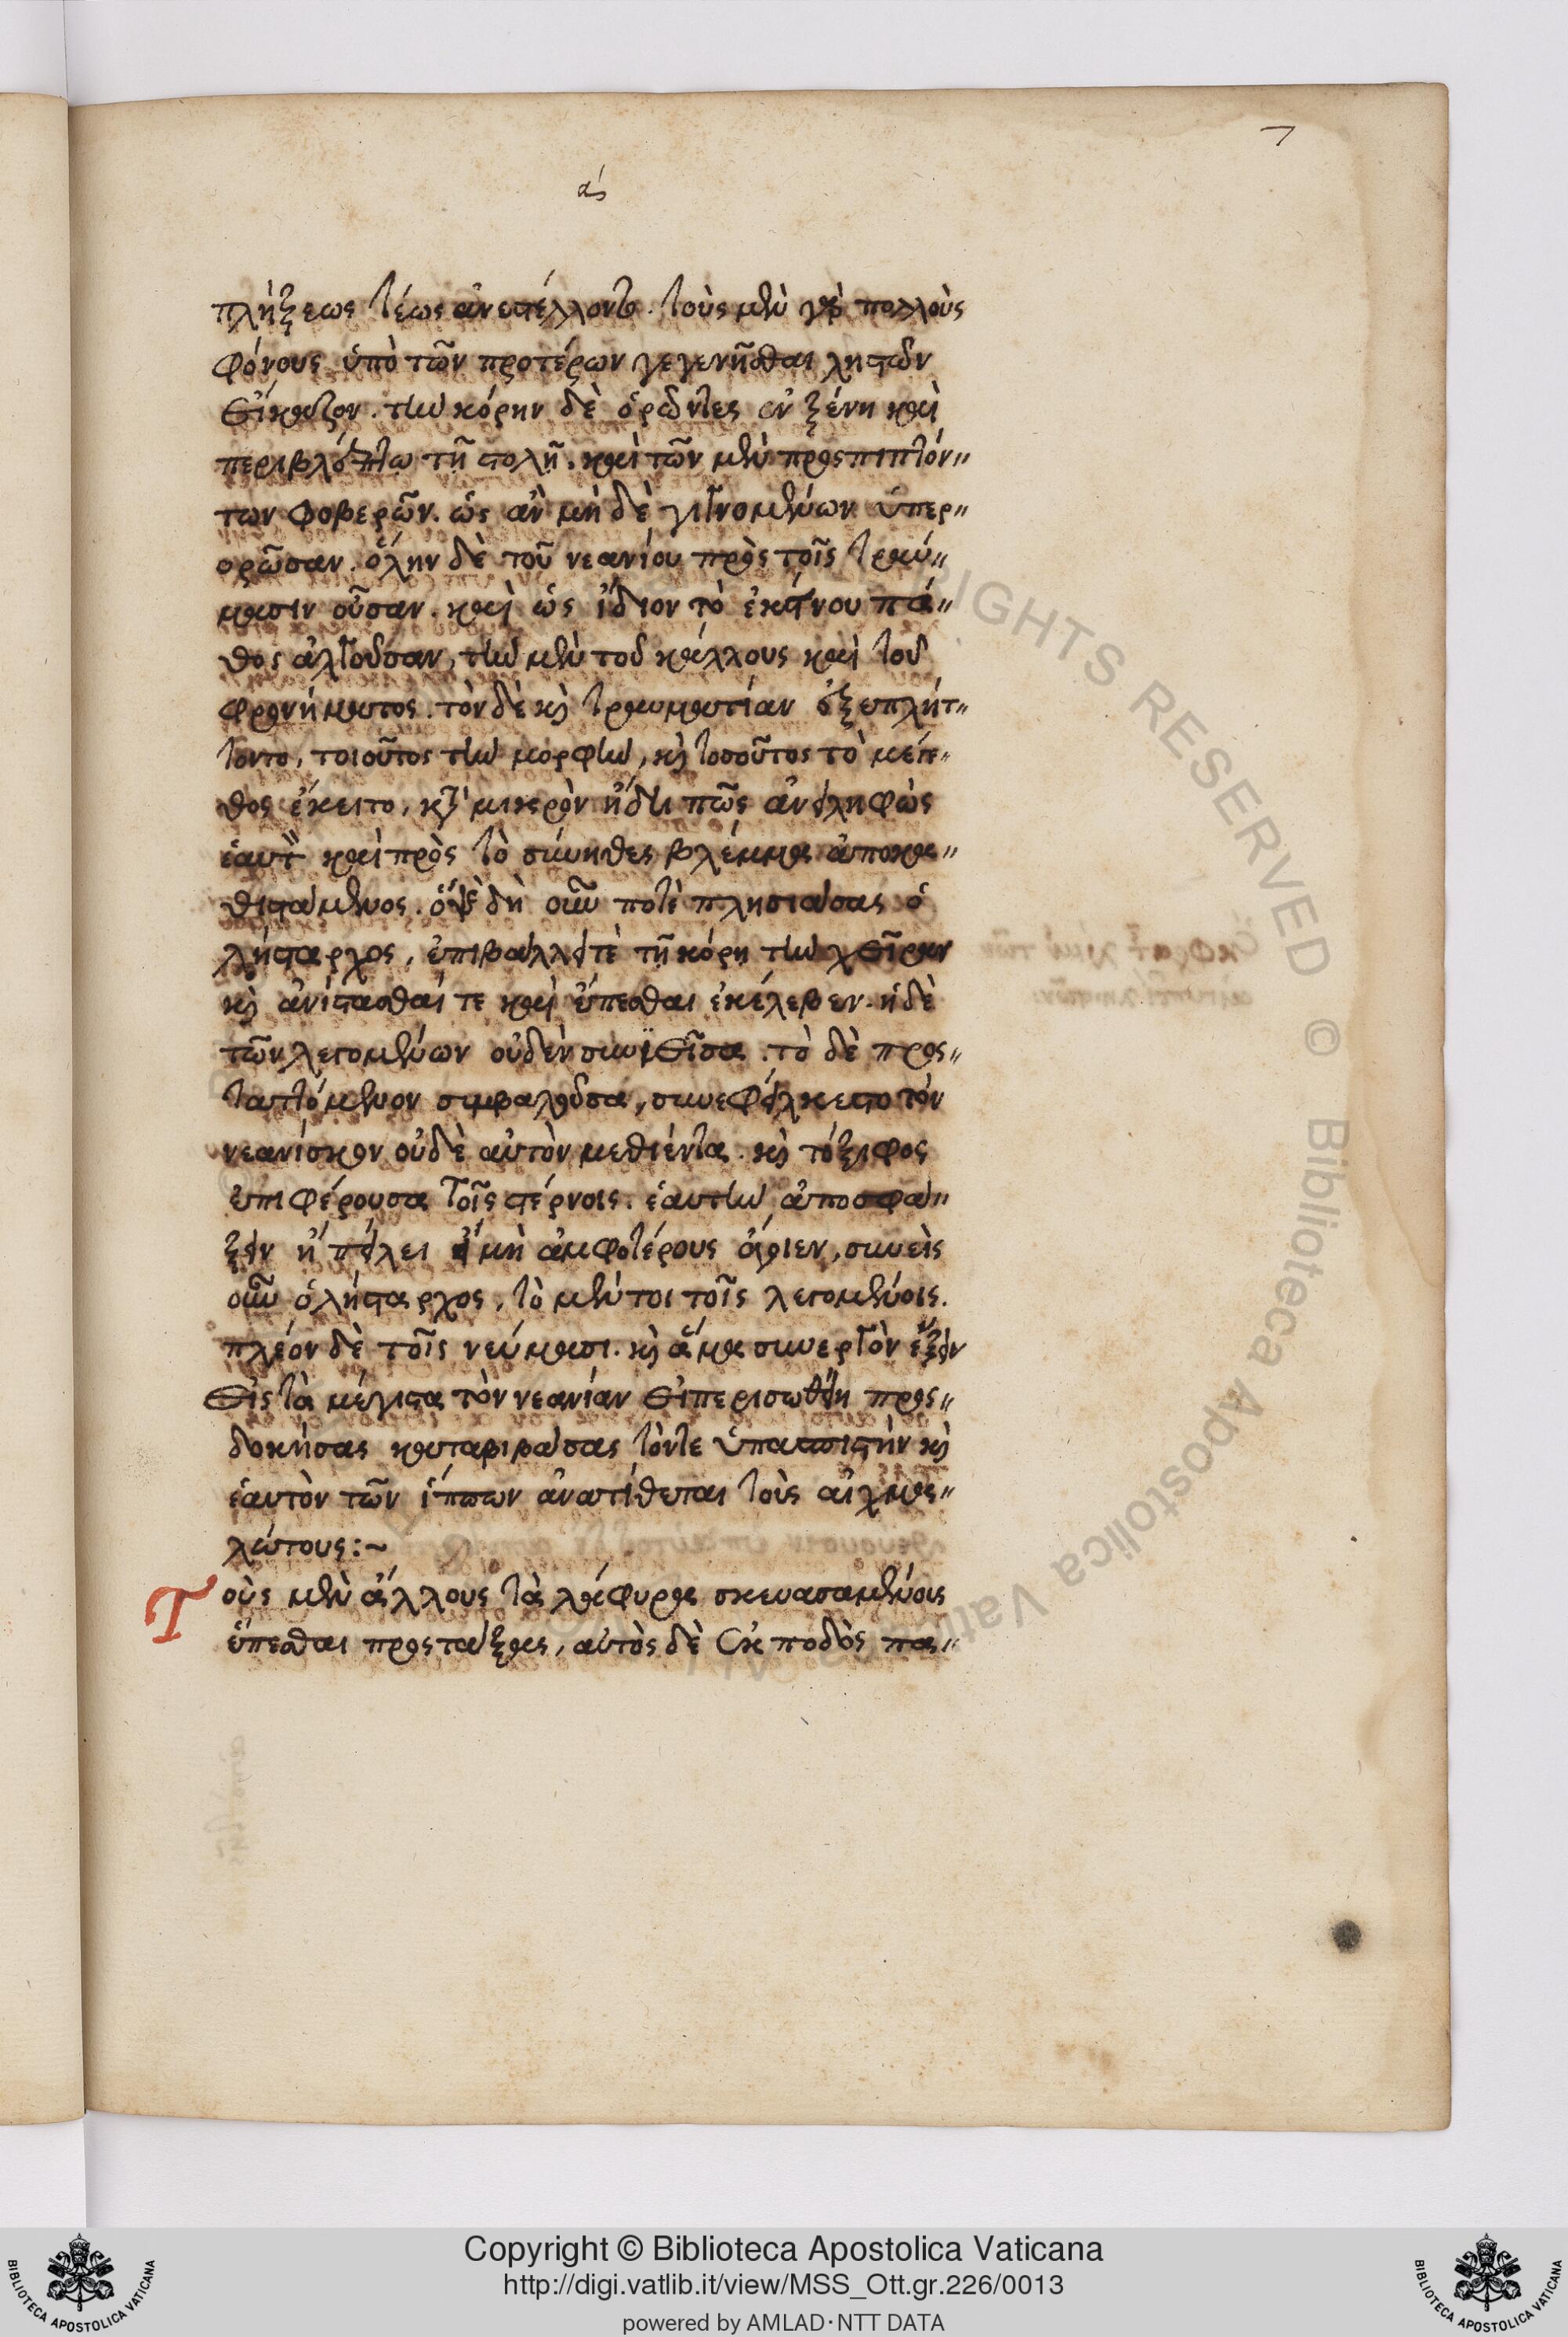 7
αον
πλήξεως τέως ἀνεστέλλοντο. τοὺς μὲν γὰρ πολλοὺς
φόνους ὑπὸ τῶν προτέρων γεγενῆσθαι ληστῶν
εἴκαζον. τὴν κόρην δὲ ὁρῶντες ἐν ξένη καὶ
περιβλέπτω τῆ στολῆ. καὶ τῶν μὲν προσπιπτόν〃
των φοβερῶν. ὡς ἂν μὴ δὲ γιγνομένων ὑπερ〃
ορῶσαν. ὅλην δὲ τοῦ νεανίου πρὸς τοῖς τραύ〃
μασιν οὖσαν. καὶ ὡς ἴδιον τὸ ἐκείνου πά〃
θος ἀλγοῦσαν, τὴν μὲν τοῦ κάλλους καὶ τοῦ
φρονήματος. τὸν δὲ καὶ τραυματίαν ἐξεπλήτ〃
τοντο, τοιοῦτος τὴν μορφὴν, καὶ τοσοῦτος τὸ μέγε〃
θος ἔκειτο, κατὰ μικρὸν ἤδη πῶς ἀνειληφὼς
ἑαυτὸν καὶ πρὸς τὸ σύνηθες βλέμμα ἀποκα〃
θιστάμενος. ὀψὲ δὴ οὖν ποτὲ πλησιάσας ὁ
λήσταρχος, ἐπιβάλλει τὲ τῆ κόρη τὴν χεῖρα
καὶ ἀνίστασθαί τε καὶ ἕπεσθαι ἐκέλευεν. ἡ δὲ
τῶν λεγομένων οὐδὲν συνϊεῖσα. τὸ δὲ προσ〃
ταττόμενον συμβαλοῦσα, συνεφείλκετο τὸν
νεανίσκον οὐδὲ αὐτὸν μεθιέντα. καὶ τὸ ξίφος
ἐπιφέρουσα τοῖς στέρνοις. ἑαυτὴν ἀποσφά〃
ξειν ἠπείλει εἰ μὴ ἀμφοτέρους ἄγοιεν, συνεὶς
οὖν ὁ λήσταρχος, τὸ μέν τοι τοῖς λεγομένοις.
πλέον δὲ τοῖς νεύμασι. καὶ ἅμα συνεργὸν ἕξειν
εἰς τὰ μέγιστα τὸν νεανίαν εἰ περισωθείη προσ〃
δοκήσας καταβιβάσας τόντε ὑπασπιστὴν καὶ
ἑαυτὸν τῶν ἵππων ἀνατίθεται τοὺς αἰχμα〃
λώτους:~
Τοὺς μὲν ἄλλους τὰ λάφυρα σκευασαμένους
ἕπεσθαι προστάξας, αὐτὸς δὲ ἐκ ποδὸς πα〃
RIGHTS RESERVED © Biblioteca Apostolica Vaticana
Copyright © Biblioteca Apostolica Vaticana
http://digi.vatlib.it/view/MSS_Ott.gr.226/0013
powered by AMLAD·NTT DATA
BIBLIOTECA APOSTOLICA VATICANA
BIBLIOTECA APOSTOLICA VATICANA